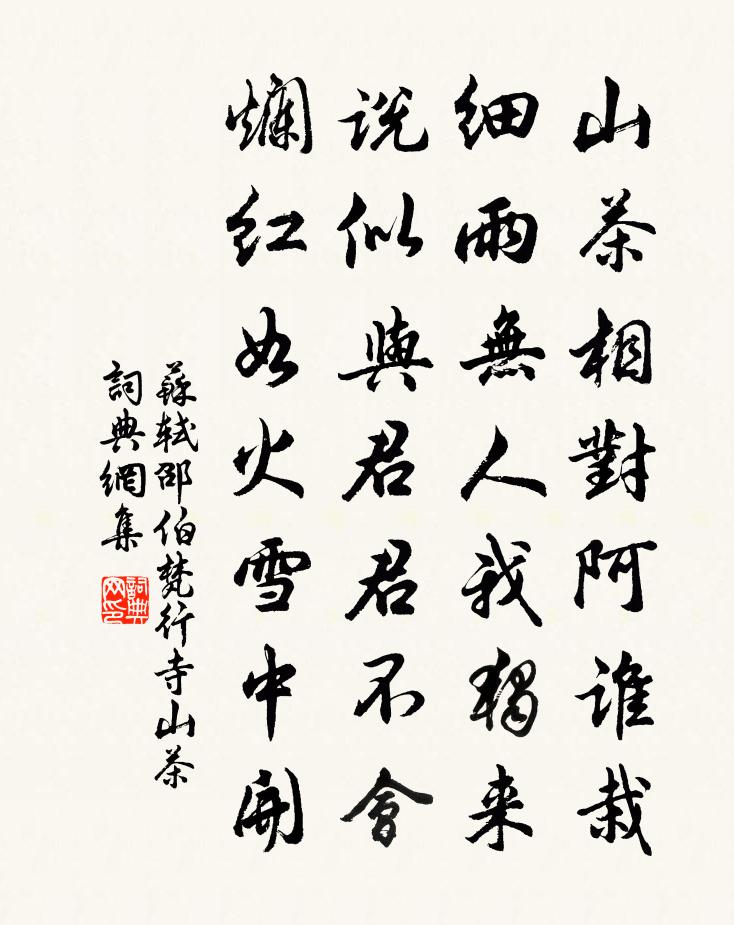 山茶相對阿誰栽
細雨無人我獨来
說似與君君不會
爛紅如火雪中開
蘇軾邵伯梵行寺山茶
詞典網集
詞典
网印